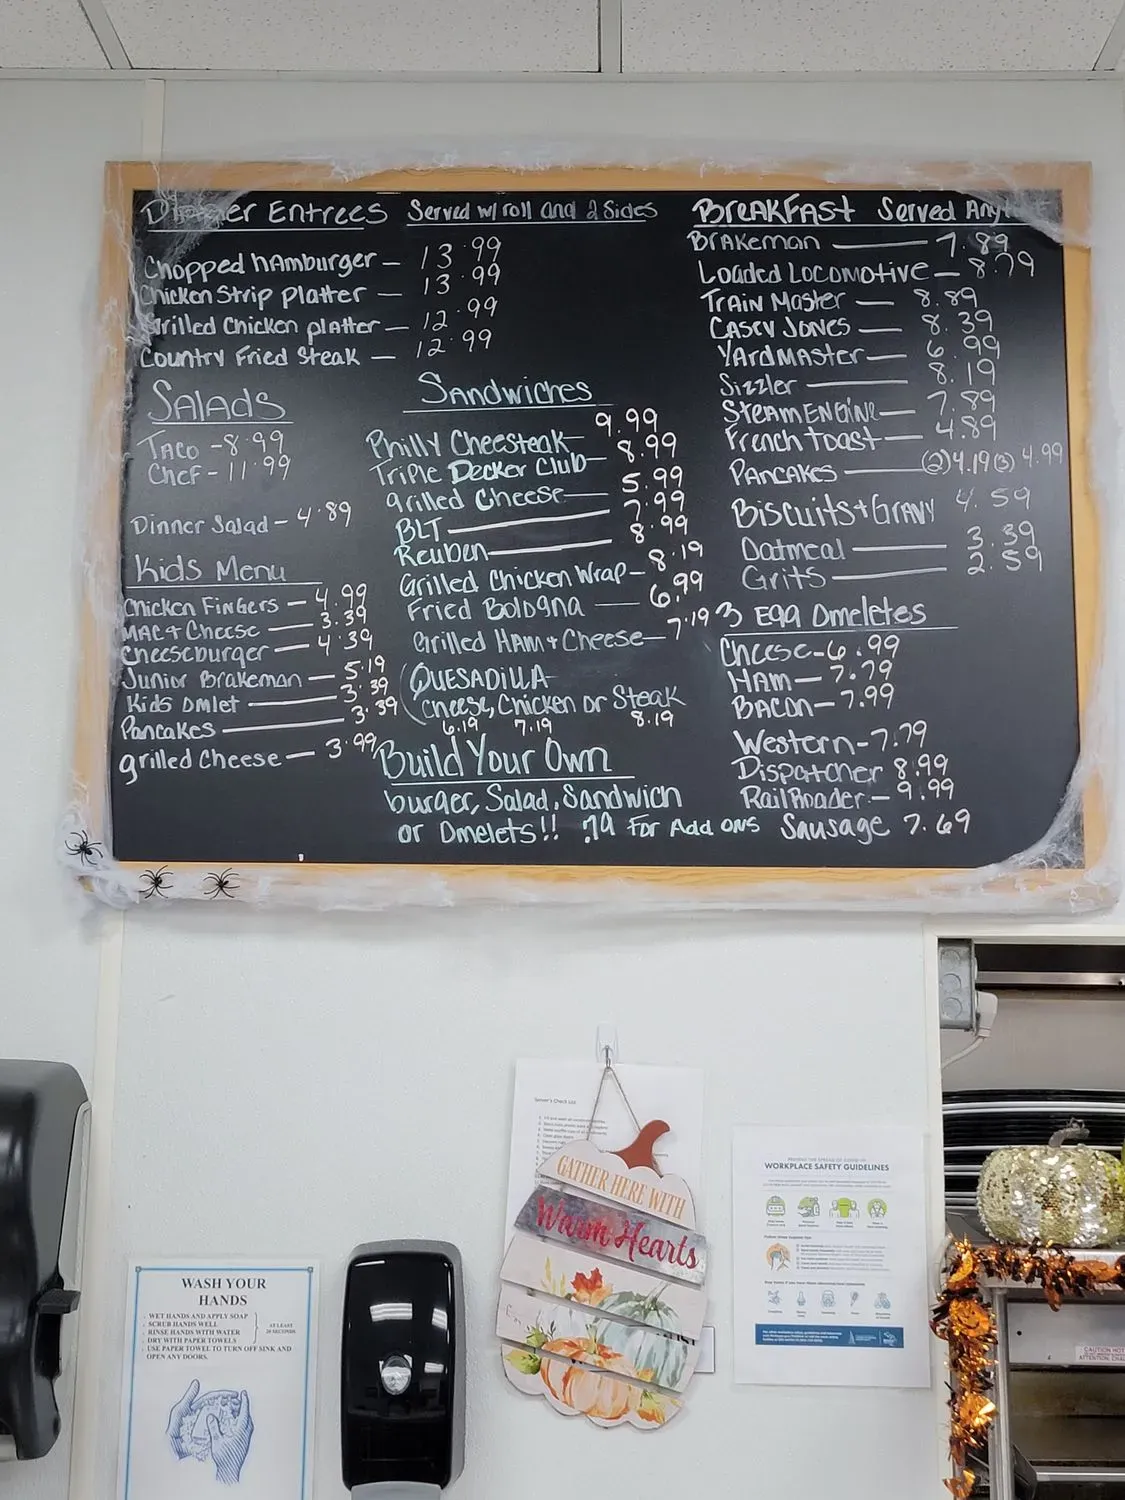 Dinner Entrees Served w/ roll and 2 Sides
Chopped hAmburger - 13.99
Chicken Strip platter - 13.99
Grilled Chicken platter - 12.99
Country Fried Steak - 12.99
Salads
Taco - 8.99
Chef - 11.99
Dinner Salad - 4.89
Kids Menu
Chicken Fingers - 4.99
Mac + Cheese - 3.39
Cheeseburger - 4.39
Junior Brakeman - 5.19
Kids Omlet - 3.39
Pancakes - 3.39
grilled Cheese - 3.99
Sandwiches
Philly Cheesteak - 9.99
Triple Decker Club - 8.99
grilled Cheese - 5.99
BLT - 7.99
Reuben - 8.99
Grilled Chicken Wrap - 8.19
Fried Bologna - 6.99
Grilled Ham + Cheese - 7.19
Quesadilla
Cheese, Chicken or Steak
6.19 7.19 8.19
Build Your Own
burger, Salad, Sandwich
or Omelets!! .79 For Add ons
BreakFast Served
Brakeman - 7.89
Loaded Locomotive - 8.79
Train Master - 8.89
Casey Jones - 8.39
Yardmaster - 6.99
Sizzler - 8.19
Steam Engine - 7.89
French toast - 4.89
Pancakes - (2) 4.19 (3) 4.99
Biscuits + Gravy 4.59
Oatmeal - 3.39
Grits - 2.59
3 Egg Omeletes
Cheese - 6.99
Ham - 7.79
Bacon - 7.99
Western - 7.79
Dispatcher 8.99
RailRoader - 9.99
Sausage 7.69
Server's Check List
GATHER HERE WITH
Warm Hearts
WORKPLACE SAFETY GUIDELINES
WASH YOUR
HANDS
WET HANDS AND APPLY SOAP
SCRUB HANDS WELL
RINSE HANDS WITH WATER
DRY WITH PAPER TOWELS
USE PAPER TOWEL TO TURN OFF SINK AND
OPEN ANY DOORS.
AT LEAST
20 SECONDS
CAUTION HOT